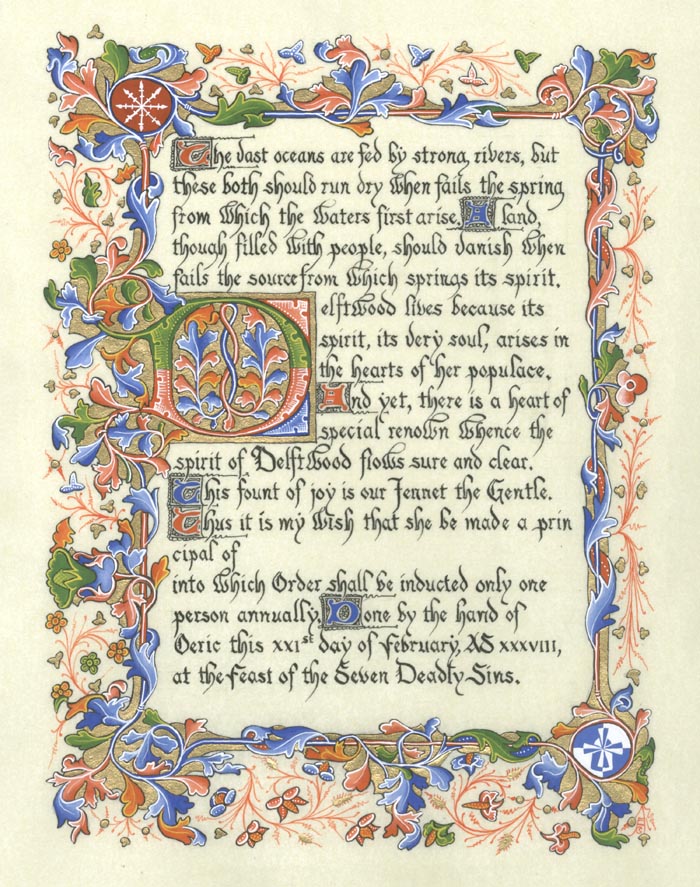 The vast oceans are fed by strong rivers, but
these both should run dry when fails the spring
from which the waters first arise. A land,
though filled with people, should vanish when
fails the source from which springs its spirit.
Delftwood lives because its
spirit, its very soul, arises in
the hearts of her populace.
And yet, there is a heart of
special renown whence the
spirit of Delftwood flows sure and clear.
This fount of joy is our Jennet the Gentle.
Thus it is my wish that she be made a prin
cipal of
into which Order shall be inducted only one
person annually. Done by the hand of
Oeric this xxist day of february, AS xxxviii,
at the feast of the Seven Deadly Sins.